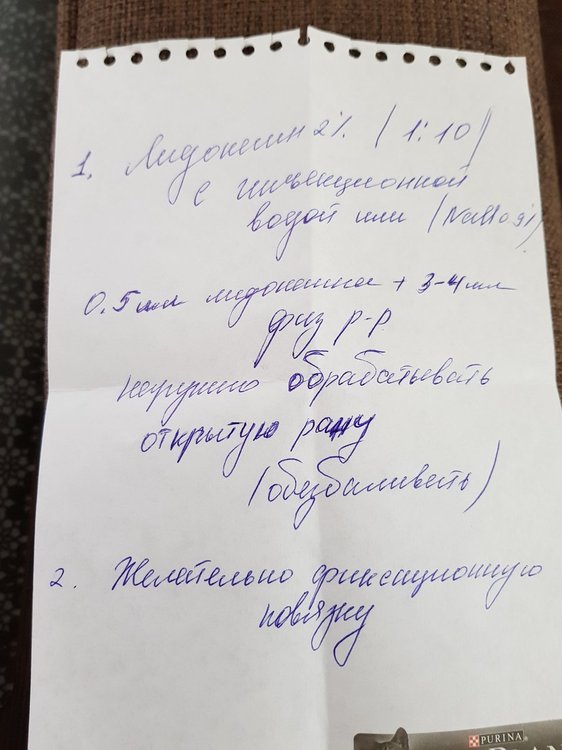 1. Лидокаин 2% (1:10)
с инъекционной
водой или (NaCl 0,9%)
0.5 мл лидокаина + 3-4 мл
физ р-р
наружно обрабатывать
открытую рану
(обезбаливать)
2. Желательно фиксационную
повязку
PURINA